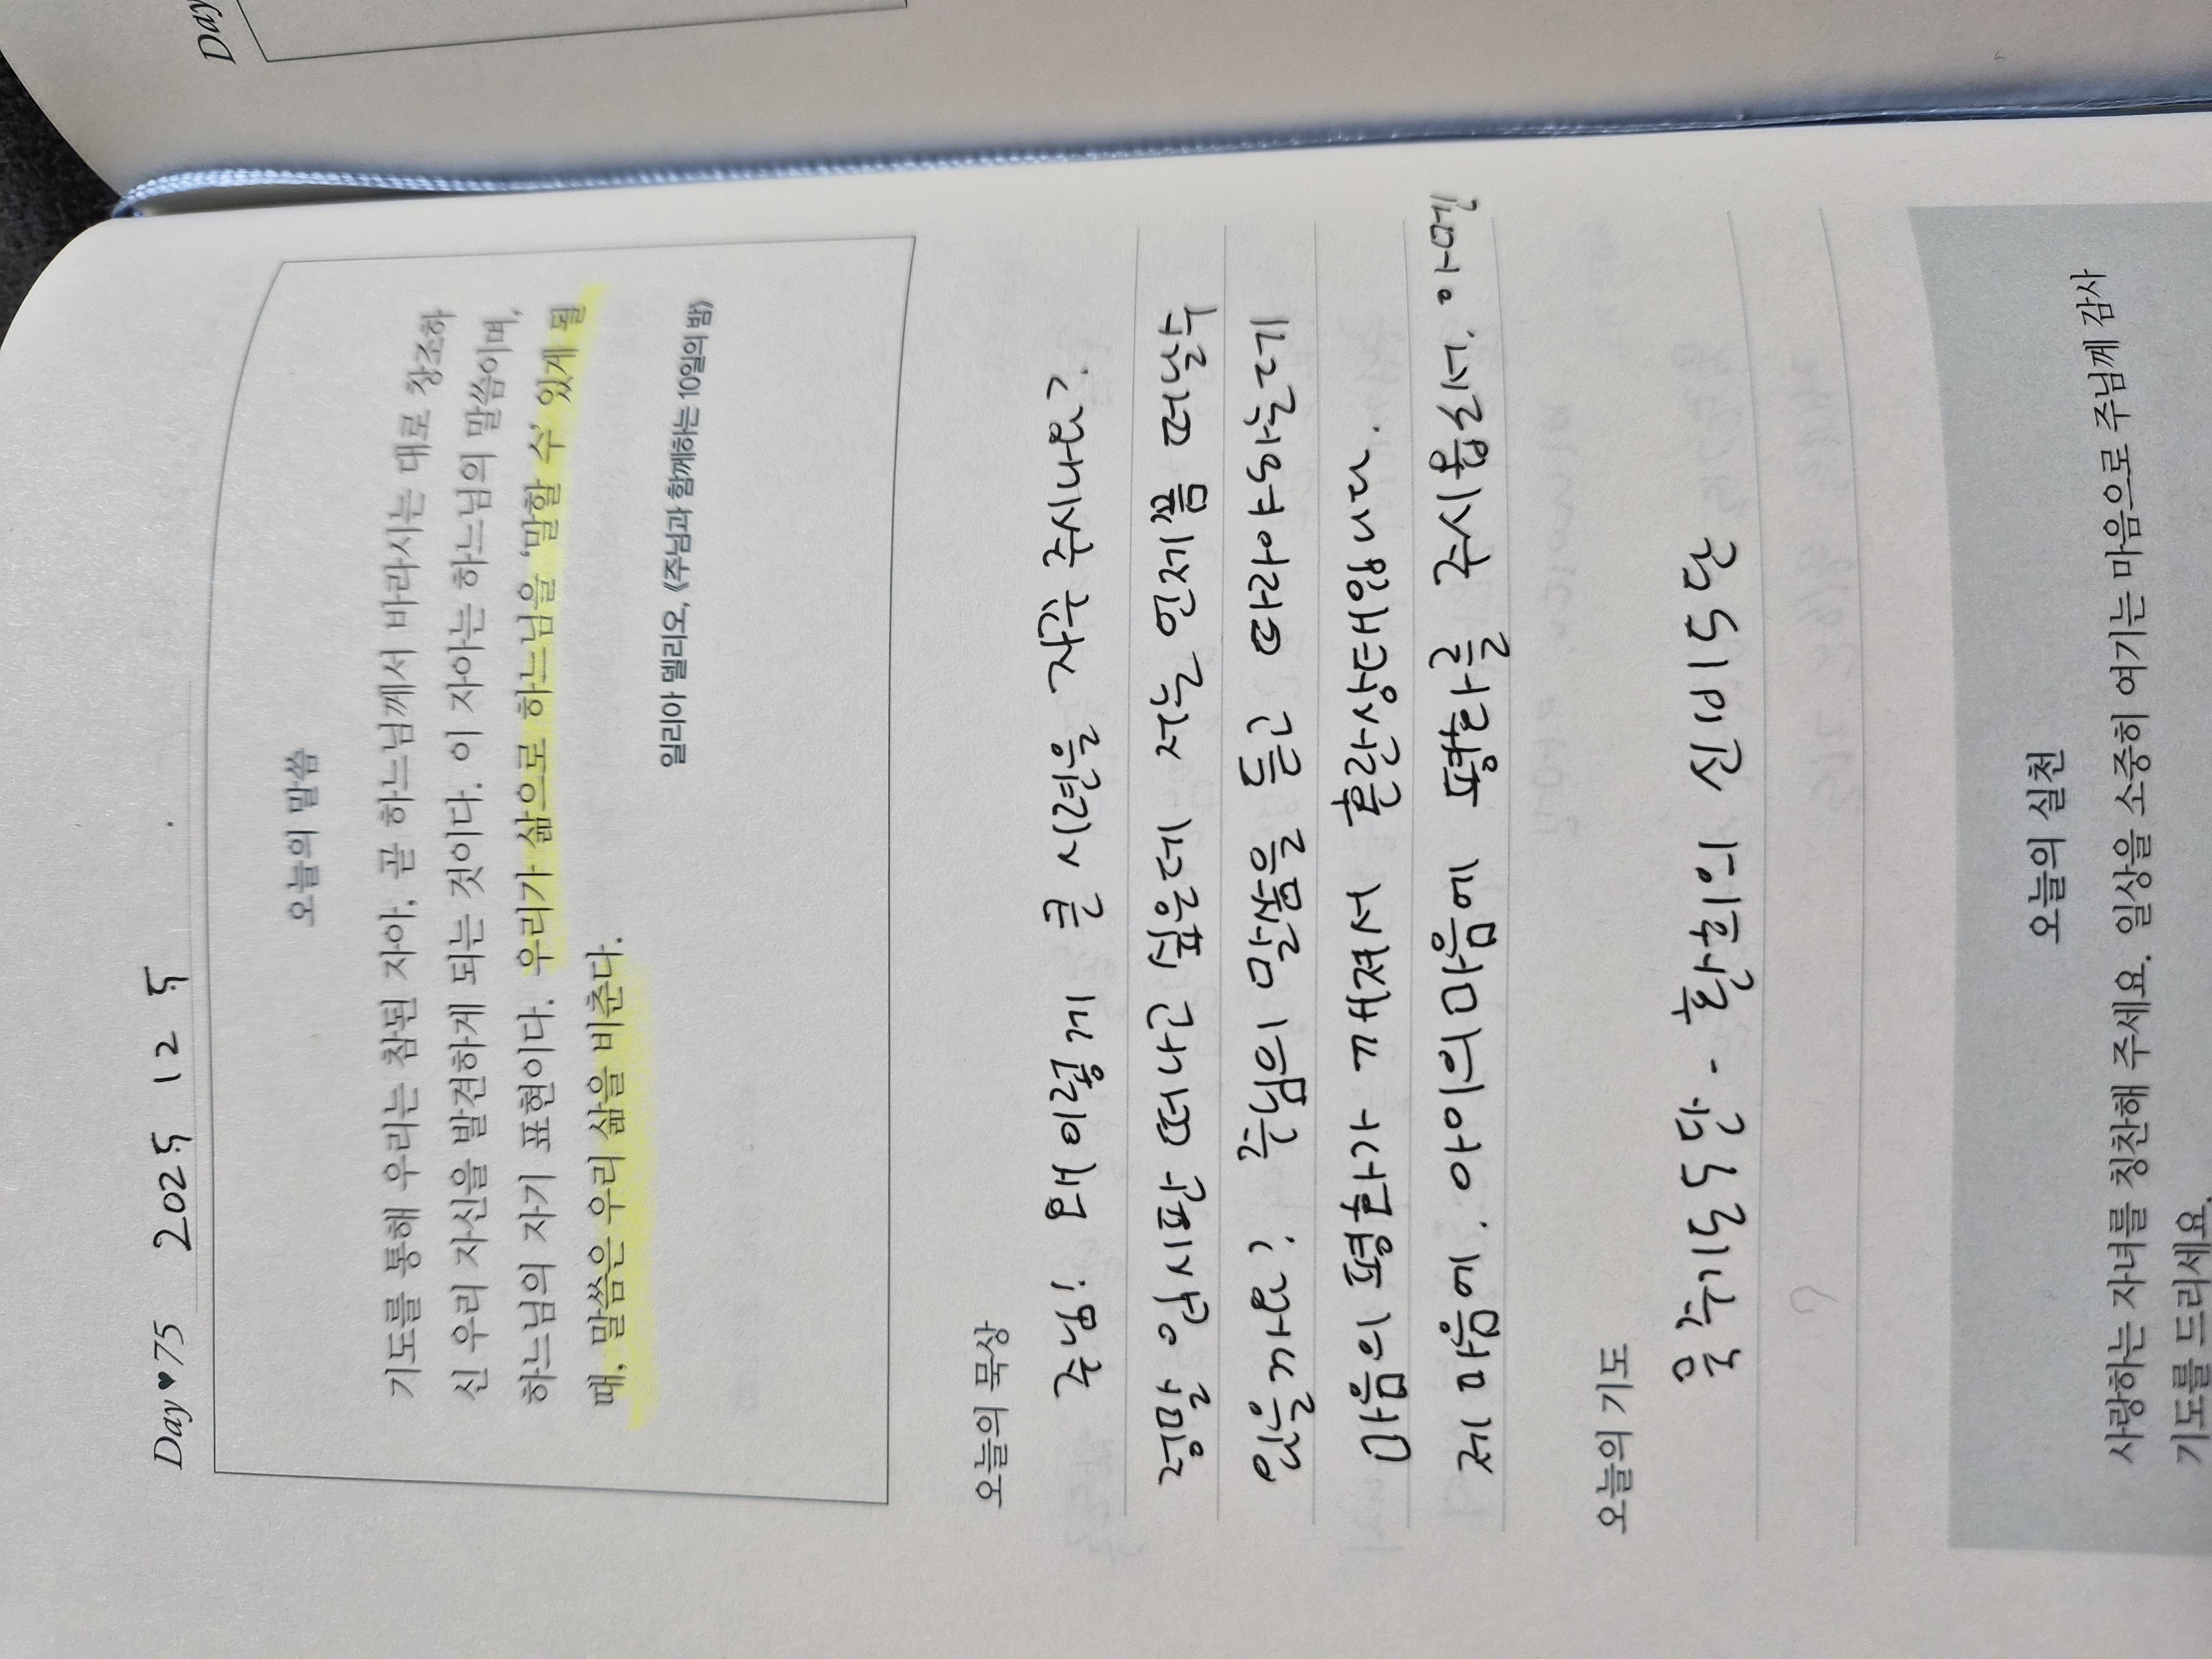 Day♥75 2025 12 5
오늘의 말씀
기도를 통해 우리는 참된 자아, 곧 하느님께서 바라시는 대로 창조하
신 우리 자신을 발견하게 되는 것이다. 이 자아는 하느님의 말씀이며,
하느님의 자기 표현이다. 우리가 삶으로 하느님을 ‘말할 수’ 있게 될
때, 말씀은 우리 삶을 비춘다.
일리아 델리오, 《주님과 함께하는 10일의 밤》
오늘의 묵상
주님! 왜 이렇게 큰 시련을 자꾸 주시나요?
정말 이 당시과 떠나고 싶은데 저는 언제쯤 떠날수
있을까요? 주님의 말씀을 믿고 따라야하는거
마음의 평화가 깨져서 혼란상태입니다.
제 마음에. 아이의 마음에 평화를 주시옵소서. 아멘
오늘의 기도
묵주기도 5단 - 환희의 신비 5단
오늘의 실천
사랑하는 자녀를 칭찬해 주세요. 일상을 소중히 여기는 마음으로 주님께 감사
기도를 드리세요.
Day